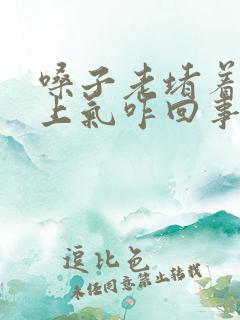 嗓子老堵着
上气咋回事
逗比色
未经同意禁止转载